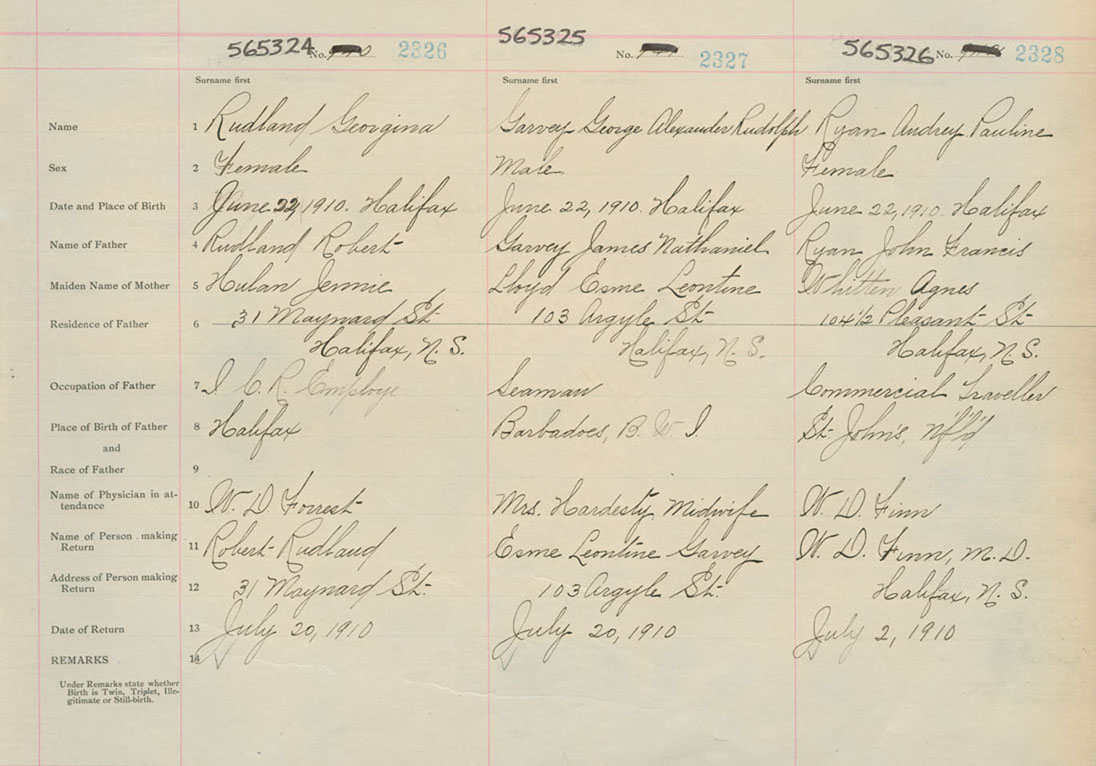 565324 No. 2326 565325 No. 2327 565326 No. 2328
Surname first Surname first Surname first
Name 1 Rudland Georgina Garvey George Alexander Rudolph Ryan Audrey Pauline
Sex 2 Female Male Female
Date and Place of Birth 3 June 22, 1910. Halifax June 22, 1910. Halifax June 22, 1910. Halifax
Name of Father 4 Rudland Robert Garvey James Nathaniel Ryan John Francis
Maiden Name of Mother 5 Hulan Jennie Lloyd Esme Leontine Whitten Agnes
Residence of Father 6 31 Maynard St. 103 Argyle St. 104½ Pleasant St.
Halifax, N. S. Halifax, N. S. Halifax, N. S.
Occupation of Father 7 I. C. R. Employe Seaman Commercial Traveller
Place of Birth of Father 8 Halifax Barbadoes, B. W. I. St. John's, Nf'l'd
and
Race of Father 9
Name of Physician in at-
tendance 10 W. D. Forrest Mrs. Hardesty Midwife W. D. Finn
Name of Person making
Return 11 Robert Rudland Esme Leontine Garvey W. D. Finn, M. D.
Address of Person making
Return 12 31 Maynard St. 103 Argyle St. Halifax, N. S.
Date of Return 13 July 20, 1910 July 20, 1910 July 2, 1910
REMARKS 14
Under Remarks state whether
Birth is Twin, Triplet, Ille-
gitimate or Still-birth.